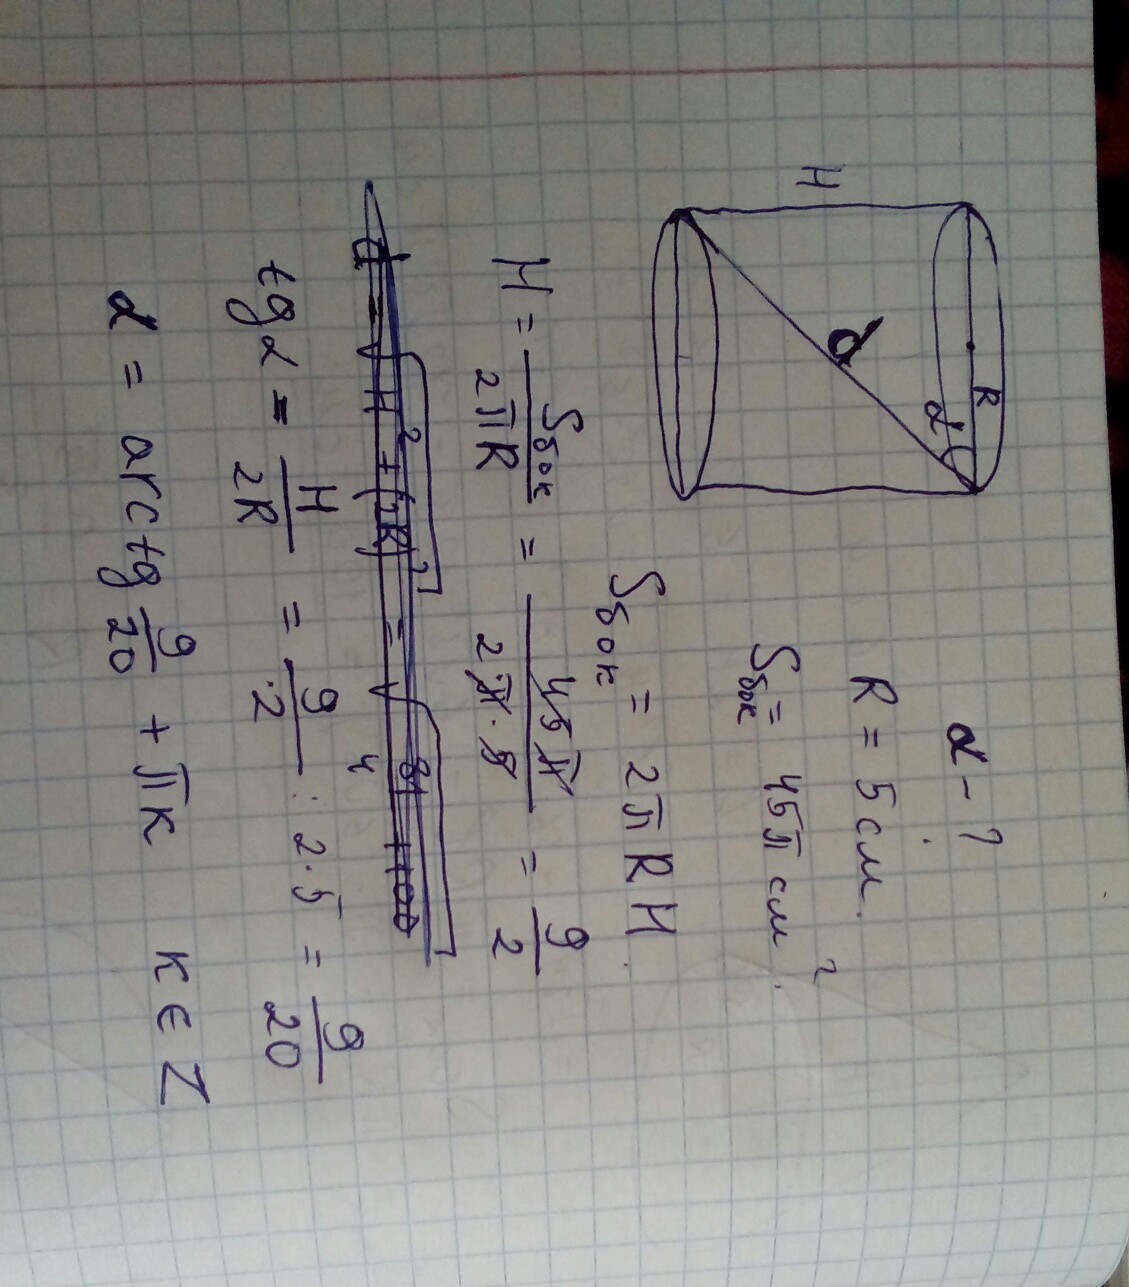 α - ?
R = 5 см.
Sбок = 45π см².
H
R
α
d
Sбок = 2πRH.
H = Sбок / 2πR = 45π / 2π·5 = 9/2
d = √H² + (2R)² =
tgα = H/2R = 9/2 : 2·5 = 9/20
α = arctg 9/20 + πк к ∈ Z